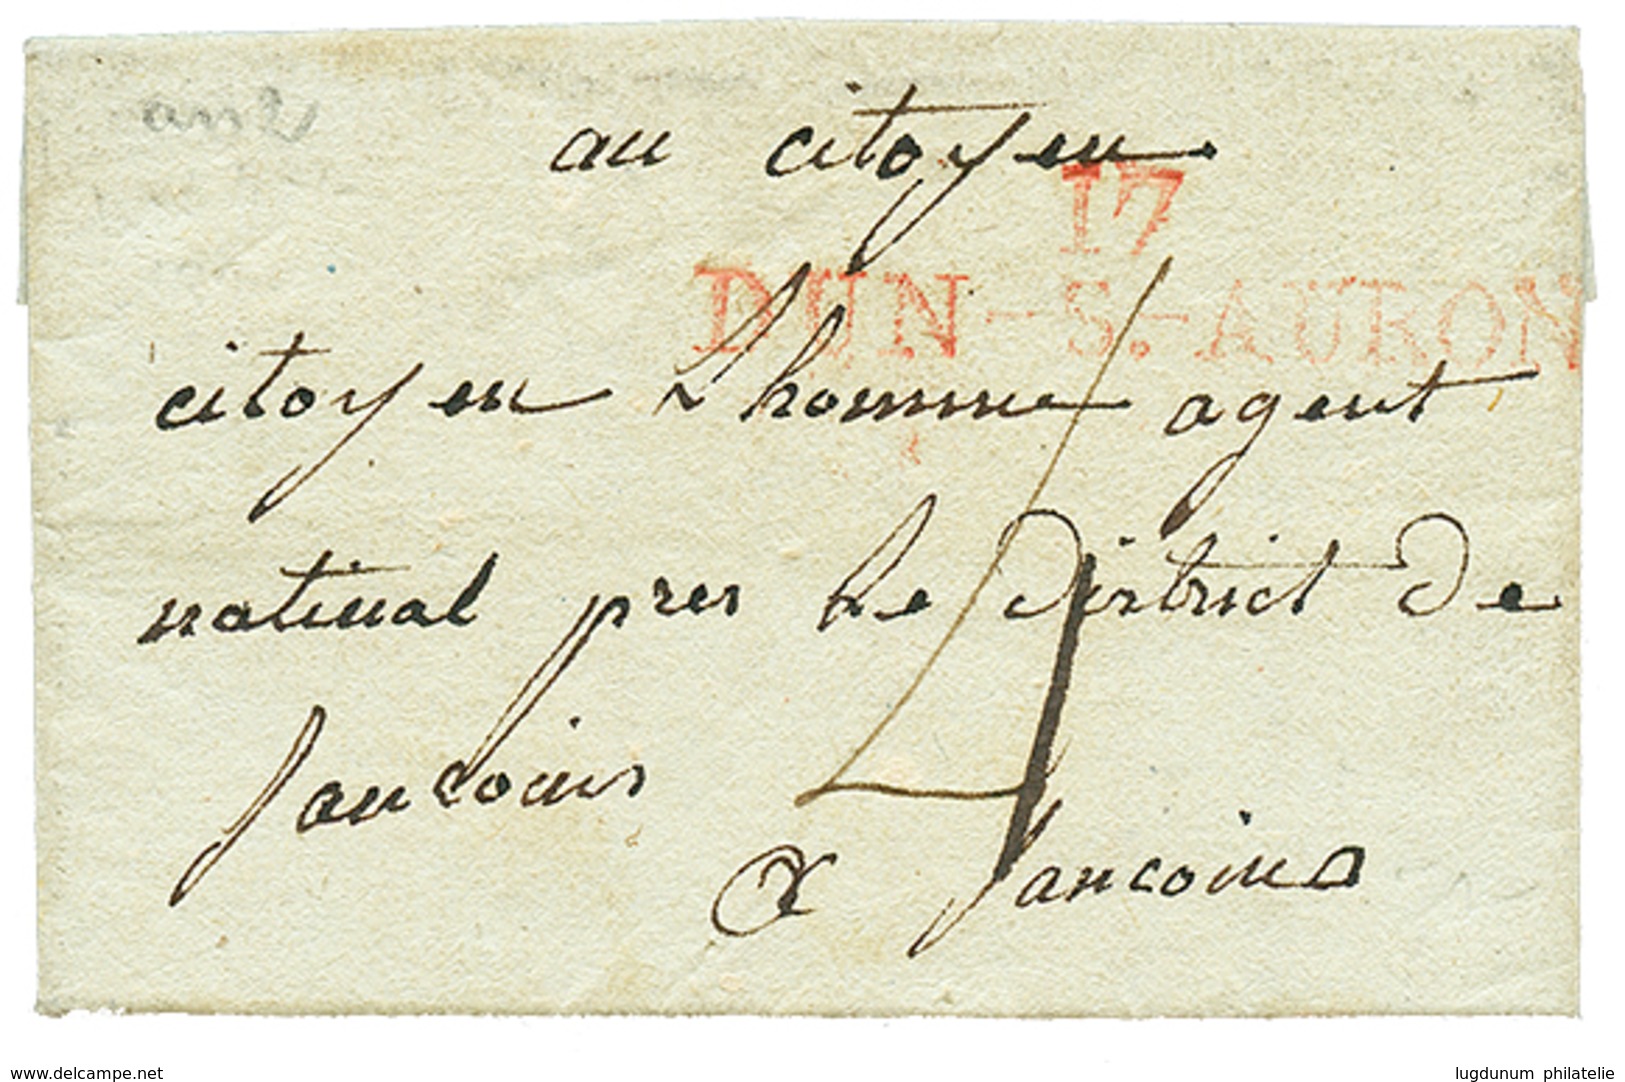 an 2
au citoyen
17
DUN-S.-AURON
citoyen L'homme agent
natinal pres Le District de
Sancoins
4
a Sancoins
delcampe.net
lugdunum philatelie